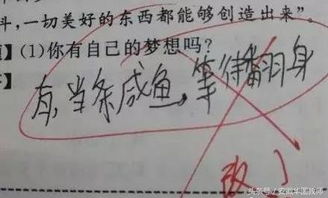 斗，一切美好的东西都能够创造出来”。
】(1)你有自己的梦想吗？
】
有,当条咸鱼,等待翻身
改
头条号／安徽华图教师